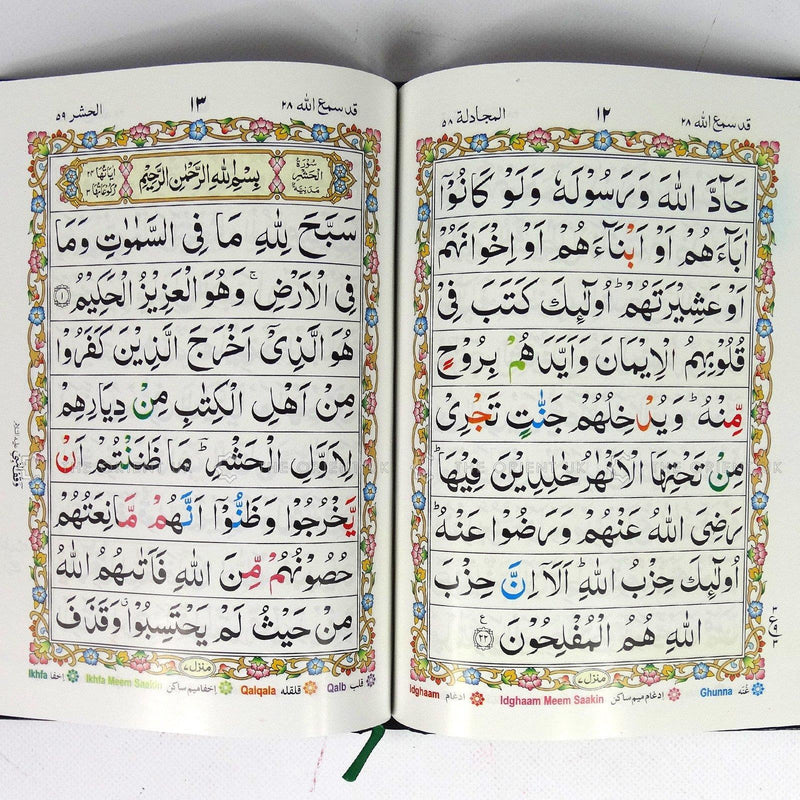 قد سمع الله ٢٨
١٢
المجادلة ٥٨
حَآدَّ اللّٰهَ وَرَسُوْلَهٗ وَلَوْ كَانُوْٓا
اٰبَآءَهُمْ اَوْ اَبْنَآءَهُمْ اَوْ اِخْوَانَهُمْ
اَوْ عَشِيْرَتَهُمْ ؕ اُولٰٓئِكَ كَتَبَ فِيْ
قُلُوْبِهِمُ الْاِيْمَانَ وَاَيَّدَهُمْ بِرُوْحٍ
مِّنْهُ ؕ وَيُدْخِلُهُمْ جَنّٰتٍ تَجْرِيْ
مِنْ تَحْتِهَا الْاَنْهٰرُ خٰلِدِيْنَ فِيْهَا ؕ
رَضِيَ اللّٰهُ عَنْهُمْ وَرَضُوْا عَنْهُ ؕ
اُولٰٓئِكَ حِزْبُ اللّٰهِ ؕ اَلَآ اِنَّ حِزْبَ
اللّٰهِ هُمُ الْمُفْلِحُوْنَ ٢٢
منزل ٧
Ghunna غُنّه
Idghaam Meem Saakin ادغام ميم ساكن
Idghaam ادغام
قد سمع الله ٢٨
١٣
الحشر ٥٩
سُوْرَةُ الْحَشْرِ مَدَنِيَّةٌ
بِسْمِ اللّٰهِ الرَّحْمٰنِ الرَّحِيْمِ
اٰيَاتُهَا ٢٤
رُكُوْعَاتُهَا ٣
سَبَّحَ لِلّٰهِ مَا فِي السَّمٰوٰتِ وَمَا
فِي الْاَرْضِ ۚ وَهُوَ الْعَزِيْزُ الْحَكِيْمُ ١
هُوَ الَّذِيْٓ اَخْرَجَ الَّذِيْنَ كَفَرُوْا
مِنْ اَهْلِ الْكِتٰبِ مِنْ دِيَارِهِمْ
لِاَوَّلِ الْحَشْرِ ؕ مَا ظَنَنْتُمْ اَنْ
يَّخْرُجُوْا وَظَنُّوْٓا اَنَّهُمْ مَّانِعَتُهُمْ
حُصُوْنُهُمْ مِّنَ اللّٰهِ فَاَتٰىهُمُ اللّٰهُ
مِنْ حَيْثُ لَمْ يَحْتَسِبُوْا ۗ وَقَذَفَ
منزل ٧
Qalb قلب
Qalqala قلقله
Ikhfa Meem Saakin اخفا ميم ساكن
Ikhfa اخفا